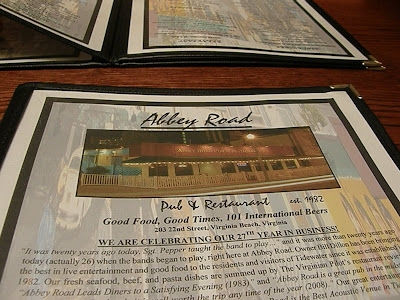 Abbey Road
Pub & Restaurant est. 1982
Good Food, Good Times, 101 International Beers
203 22nd Street, Virginia Beach, Virginia
WE ARE CELEBRATING OUR 27th YEAR IN BUSINESS!
"It was twenty years ago today, Sgt. Pepper taught the band to play..." and it was more than twenty years
today (actually 26) when the bands began to play, right here at Abbey Road. Owner Bill Dillon has been bringing
the best in live entertainment and good food to the residents and visitors of Tidewater since it was established
1982. Our fresh seafood, beef, and pasta dishes are summed up by the Virginian Pilot's restaurant
"Abbey Road Leads Diners to a Satisfying Evening (1983)" and "Abbey Road is a great pub in the
worth the trip any time of the year (2008)" Our great
is the Best Acoustic Venue in